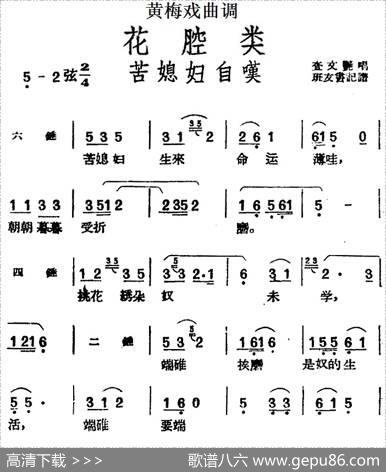 黄梅戏曲调
花腔类
苦媳妇自嘆
5 - 2弦 2/4
查文艷唱
班友書記譜
六 錘 5 3 5 3 1 2 2 6 1 6 1 5 0
苦媳妇 生來 命运 薄哇,
1 1 3 3 3 5 1 2 2 3 5 2 1 6 5 -
朝朝暮暮 受折 磨。
四 錘 1 2 3 5 3 2 · 1 6 3 1 2 · 3
挑花 綉朵 奴 未 学,
1 2 1 6 二 錘 5 3 1 6 1 1 5 5 6 1
端碓 挨磨 是奴的生
5 5 3 1 6 0 5 5 1 6
活, 端碓 要端
高清下载 >>> 歌谱八六 www.gepu86.com